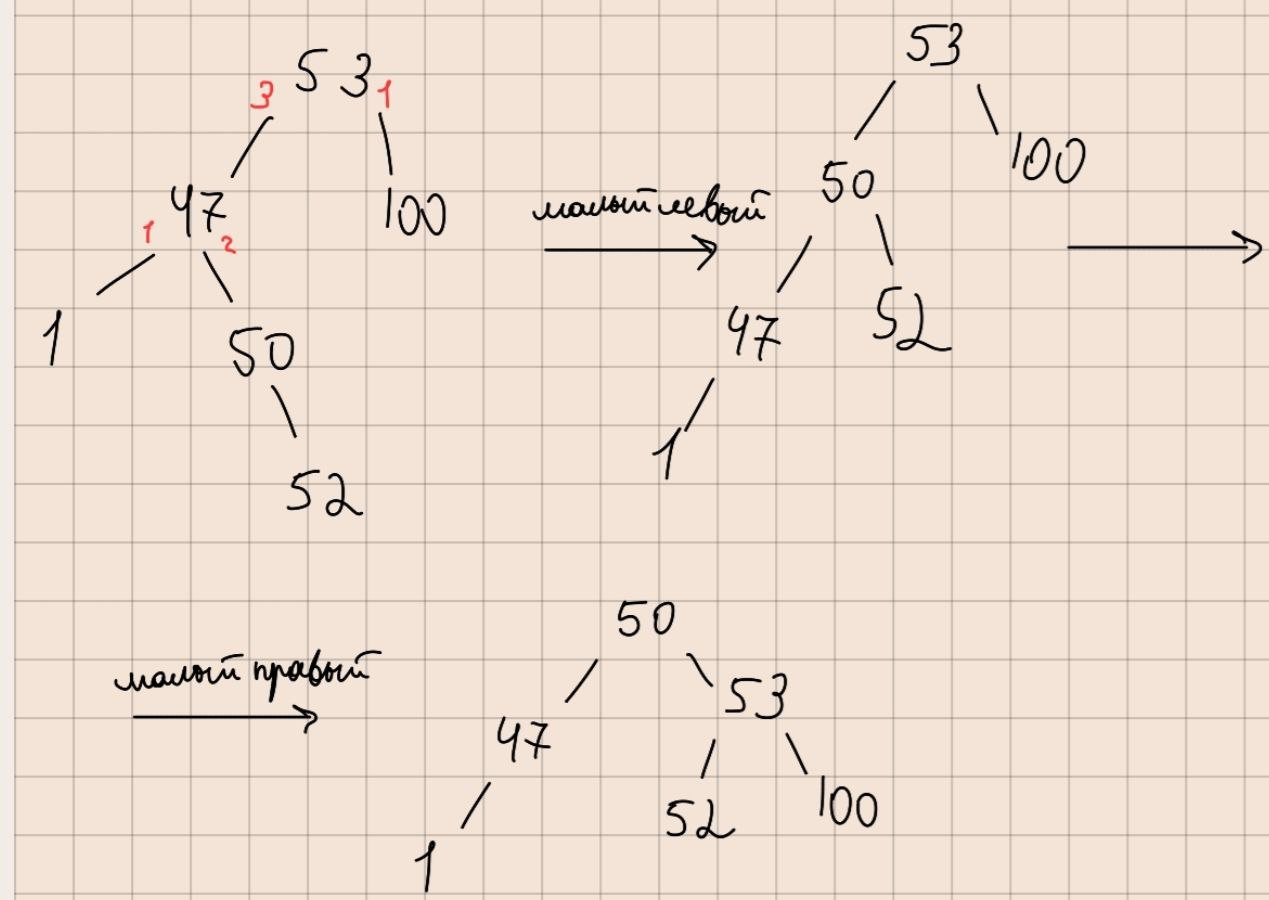 53
3 1
47 100
1 2
1 50
52
малый левый
53
50 100
47 52
1
малый правый
50
47 53
52 100
1